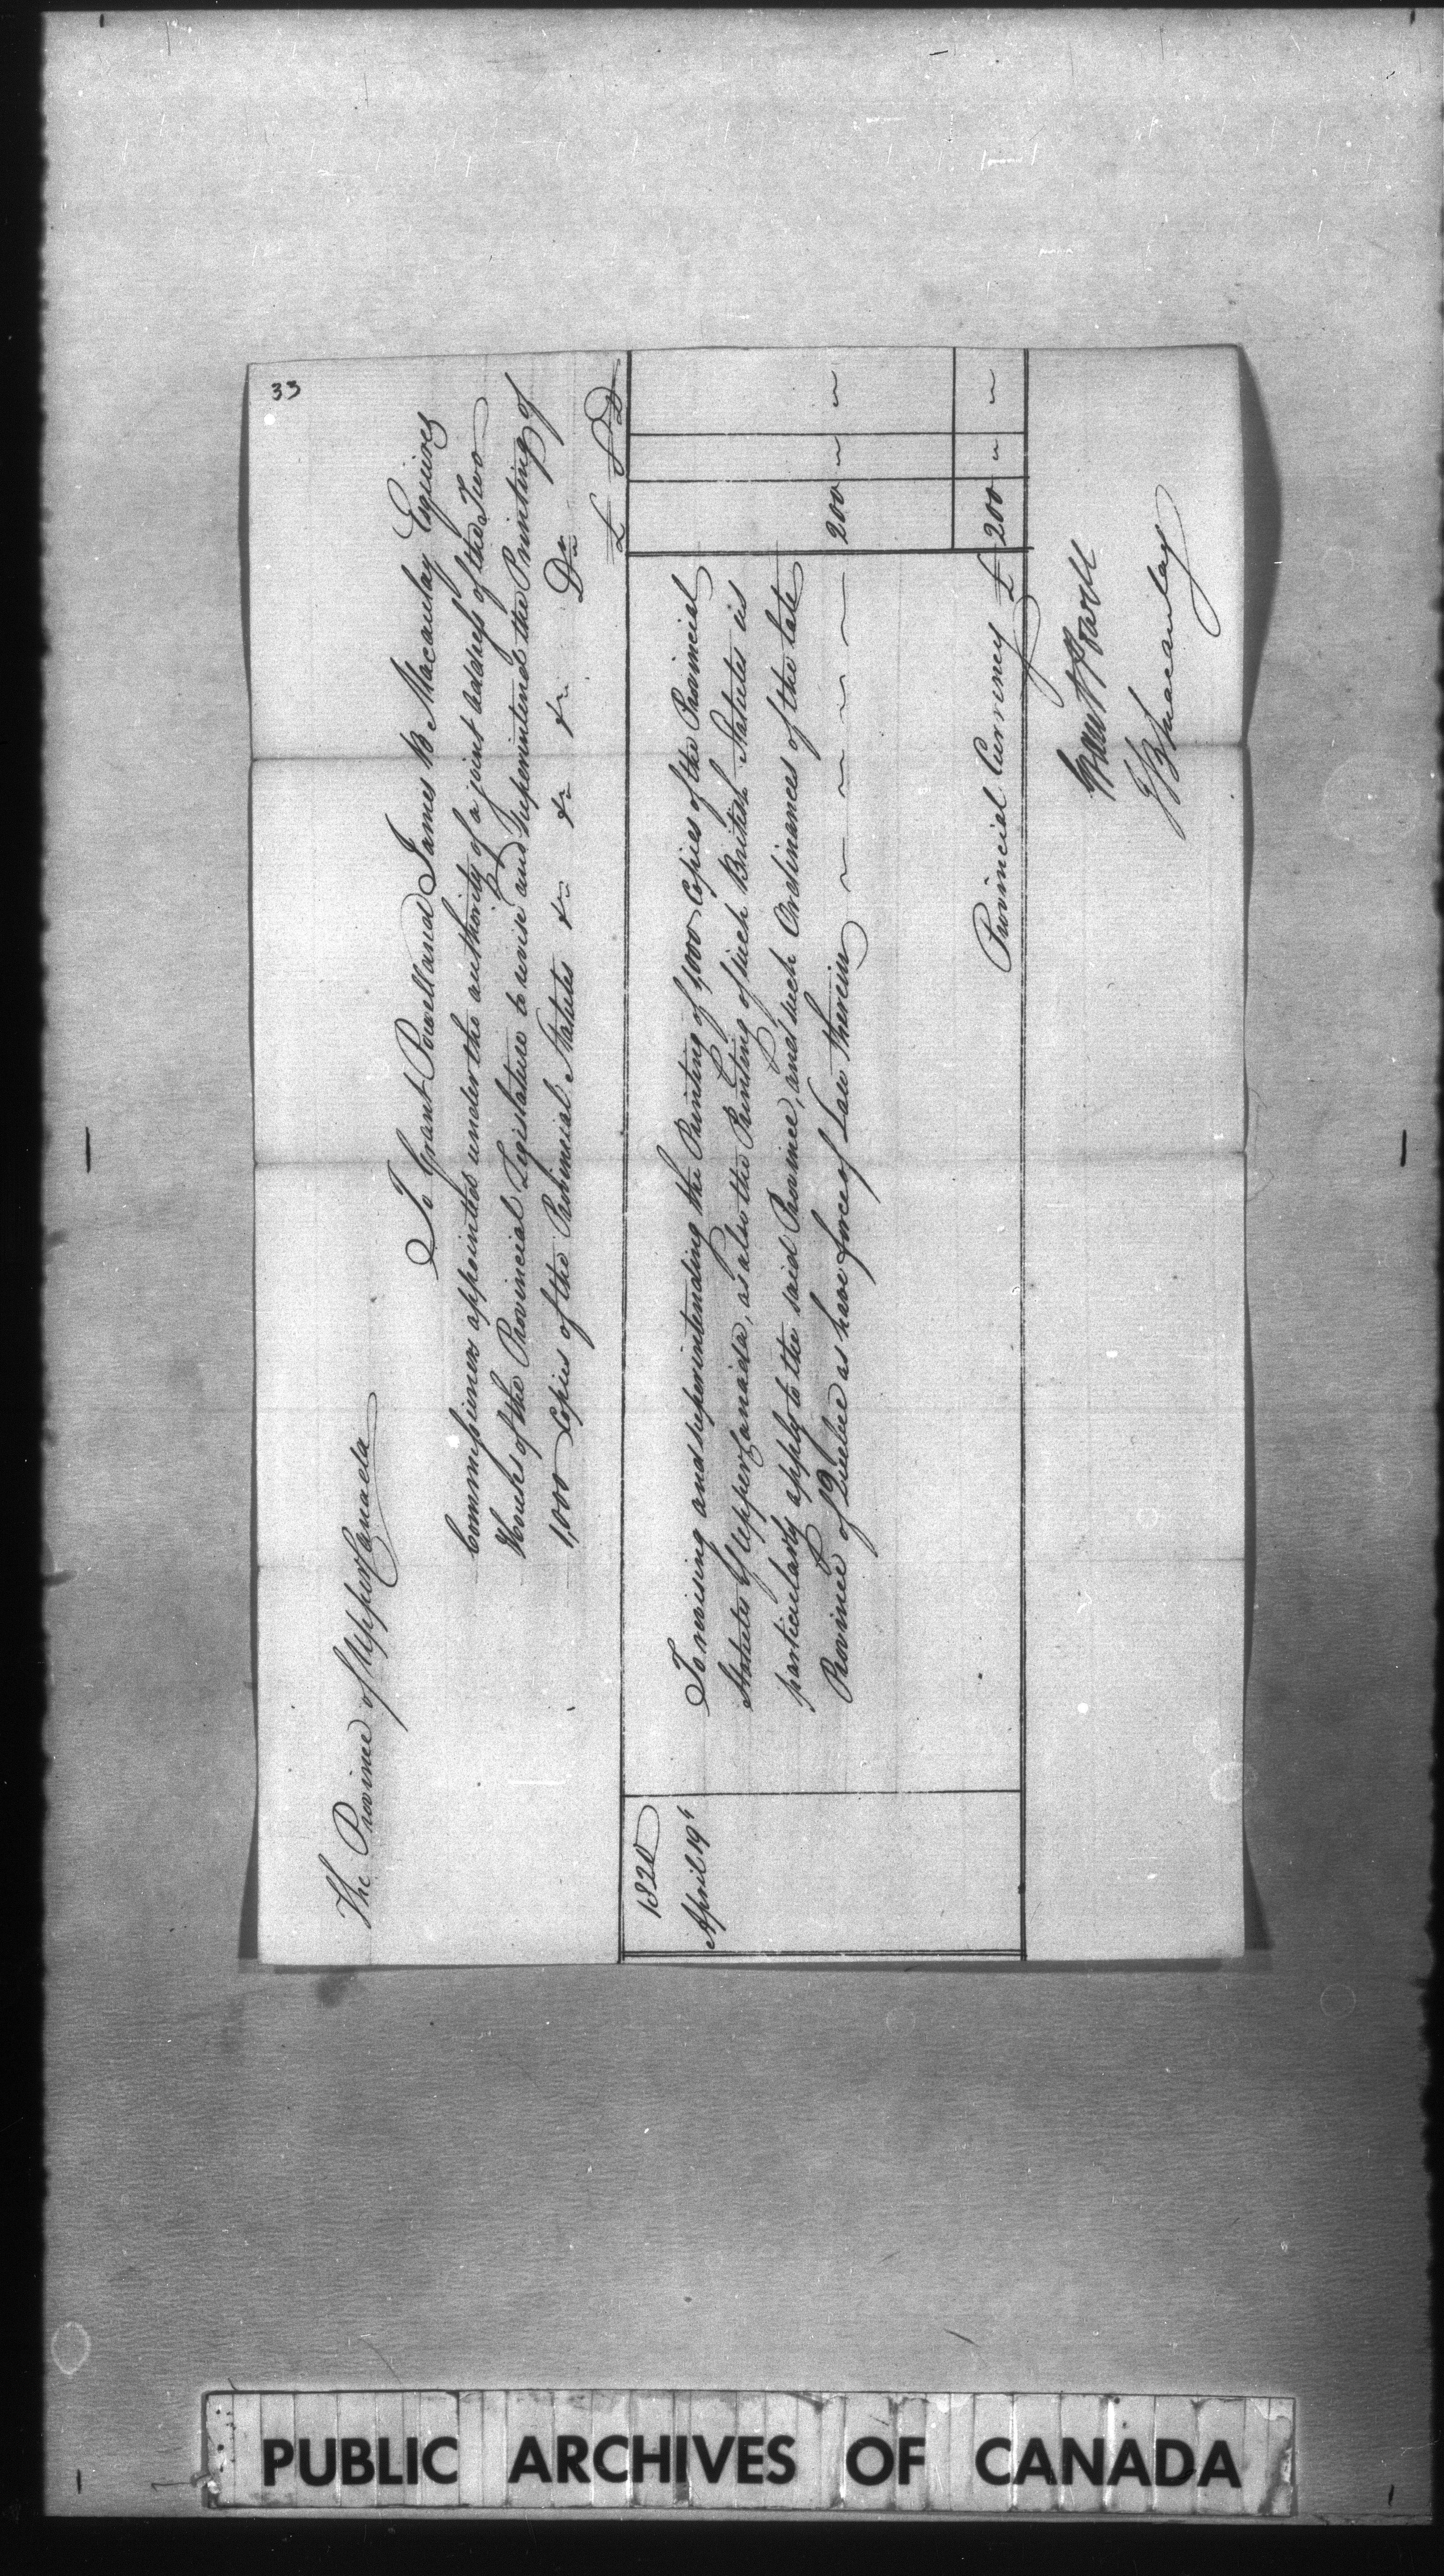 33
The Province of Upper Canada
To Grant Powell and James B Macaulay Esquires
Commissioners appointed under the authority of a joint address of the Two
Houses of the Provincial Legislature to revise and Superintend the Printing of
1,000 Copies of the Provincial Statutes &c &c &c Dr
£ S D
1820
April 19th To revising and superintending the Printing of 1,000 Copies of the Provincial
Statutes of Upper Canada, as also the Printing of such British Statutes as
particularly apply to the said Province, and such Ordinances of the late
Province of Quebec as have force of Law therein 200 " "
Provincial Currency £ 200 " "
Grant Powell
J B Macaulay
PUBLIC ARCHIVES OF CANADA